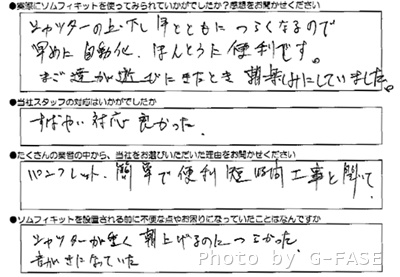 ●実際にソムフィキットを使ってみられていかがでしたか?感想をお聞かせください
シャッターの上げ下し 年とともに つらくなるので
早めに 自動化. ほんとうに 便利です。
まご達が遊びにきたとき 楽しみにしていました。
●当社スタッフの対応はいかがでしたか
すばやい 対応 良かった.
●たくさんの業者の中から、当社をお選びいただいた理由をお聞かせください
パンフレット. 簡単で 便利 短時間 工事と聞いて.
●ソムフィキットを設置される前に不便な点やお困りになっていたことはなんですか
シャッターが重く 朝 上げるのに つらかった.
音がきになっていた
Photo by G-FASE